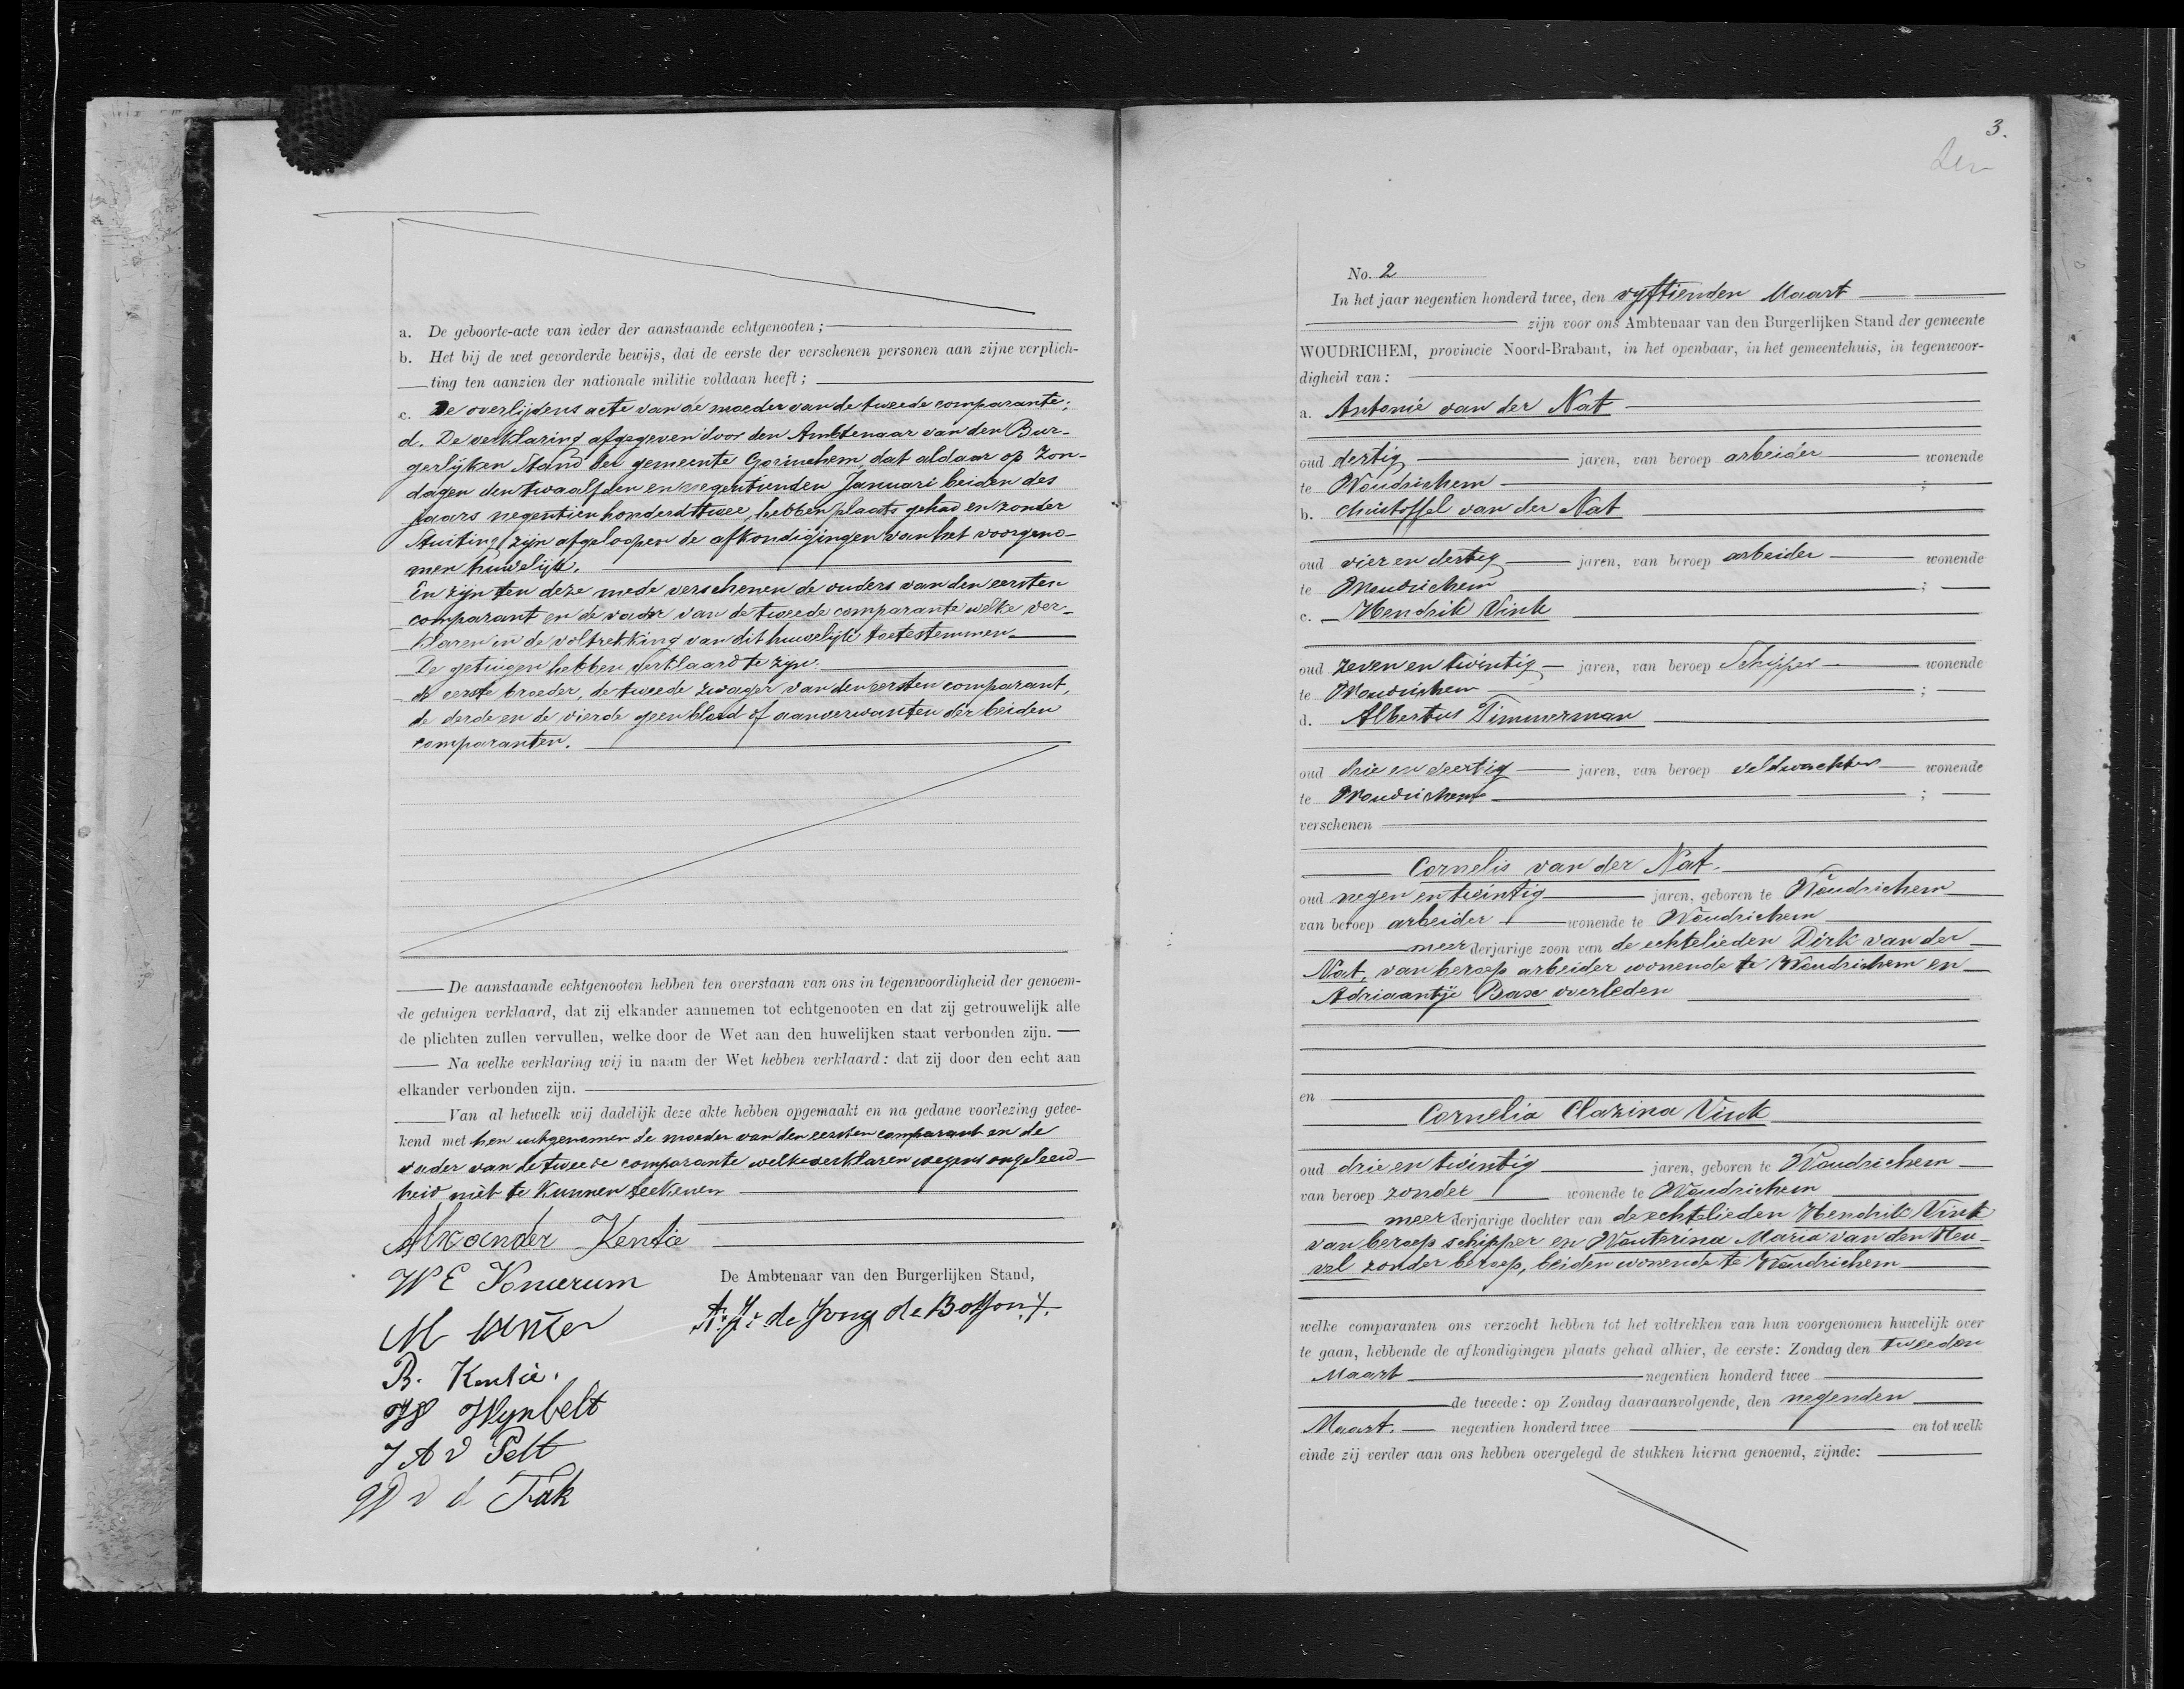 a. De geboorte-acte van ieder der aanstaande echtgenooten;
b. Het bij de wet gevorderde bewijs, dat de eerste der verschenen personen aan zijne verplich-
ting ten aanzien der nationale militie voldaan heeft;
c. De overlijdens acte van de moeder van de tweede comparante;
d. De verklaring afgegeven door den Ambtenaar van den Bur-
gerlijken Stand der gemeente Gorinchem, dat aldaar op Zon-
dagen den twaalfden en negentienden Januari beiden des
jaars negentienhonderdtwee, hebben plaats gehad en zonder
stuiting zijn afgeloopen de afkondigingen van het voorgeno-
men huwelijk.
En zijn ten deze mede verschenen de ouders van den eersten
comparant en de vader van de tweede comparante welke ver-
klaren in de voltrekking van dit huwelijk toetestemmen
De getuigen hebben verklaard te zijn:
de eerste broeder, de tweede zwager van den eersten comparant,
de derde en de vierde geen bloed of aanverwanten der beiden
comparanten.
De aanstaande echtgenooten hebben ten overstaan van ons in tegenwoordigheid der genoem-
de getuigen verklaard, dat zij elkander aannemen tot echtgenooten en dat zij getrouwelijk alle
de plichten zullen vervullen, welke door de Wet aan den huwelijken staat verbonden zijn.
Na welke verklaring wij in naam der Wet hebben verklaard: dat zij door den echt aan
elkander verbonden zijn.
Van al hetwelk wij dadelijk deze akte hebben opgemaakt en na gedane voorlezing getee-
kend met hen uitgenomen de moeder van den eersten comparant en de
vader van de tweede comparante welke verklaren wegens ongeleerd-
heid niet te kunnen teekenen
Alexander Kentie
W E
De Ambtenaar van den Burgerlijken Stand,
A. J. de Jong de
M
B. Kentie.
H Wynbelt
J A v Pelt
W v d Tak
3.
No. 2
In het jaar negentien honderd twee, den vyftienden Maart
zijn voor ons Ambtenaar van den Burgerlijken Stand der gemeente
WOUDRICHEM, provincie Noord-Brabant, in het openbaar, in het gemeentehuis, in tegenwoor-
digheid van:
a. Antonie van der Nat
oud dertig jaren, van beroep arbeider wonende
te Woudrichem ;
b. Christoffel van der Nat
oud vier en dertig jaren, van beroep arbeider wonende
te Woudrichem ;
c. Hendrik Vink
oud zeven en twintig jaren, van beroep Schipper wonende
te Woudrichem ;
d. Albertus Timmerman
oud drie en veertig jaren, van beroep veldwachter wonende
te Woudrichem ;
verschenen
Cornelis van der Nat.
oud negen en twintig jaren, geboren te Woudrichem
van beroep arbeider wonende te Woudrichem
meerderjarige zoon van de echtelieden Dirk van der
Nat, van beroep arbeider wonende te Woudrichem en
Adriaantje Bax overleden
en
Cornelia Clazina Vink
oud drie en twintig jaren, geboren te Woudrichem
van beroep zonder wonende te Woudrichem
meerderjarige dochter van de echtelieden Hendrik Vink
van beroep schipper en Wouterina Maria van den Heu-
vel zonder beroep, beiden wonende te Woudrichem
welke comparanten ons verzocht hebben tot het voltrekken van hun voorgenomen huwelijk over
te gaan, hebbende de afkondigingen plaats gehad alhier, de eerste: Zondag den tweeden
Maart negentien honderd twee
de tweede: op Zondag daaraanvolgende, den negenden
Maart. negentien honderd twee en tot welk
einde zij verder aan ons hebben overgelegd de stukken hierna genoemd, zijnde: